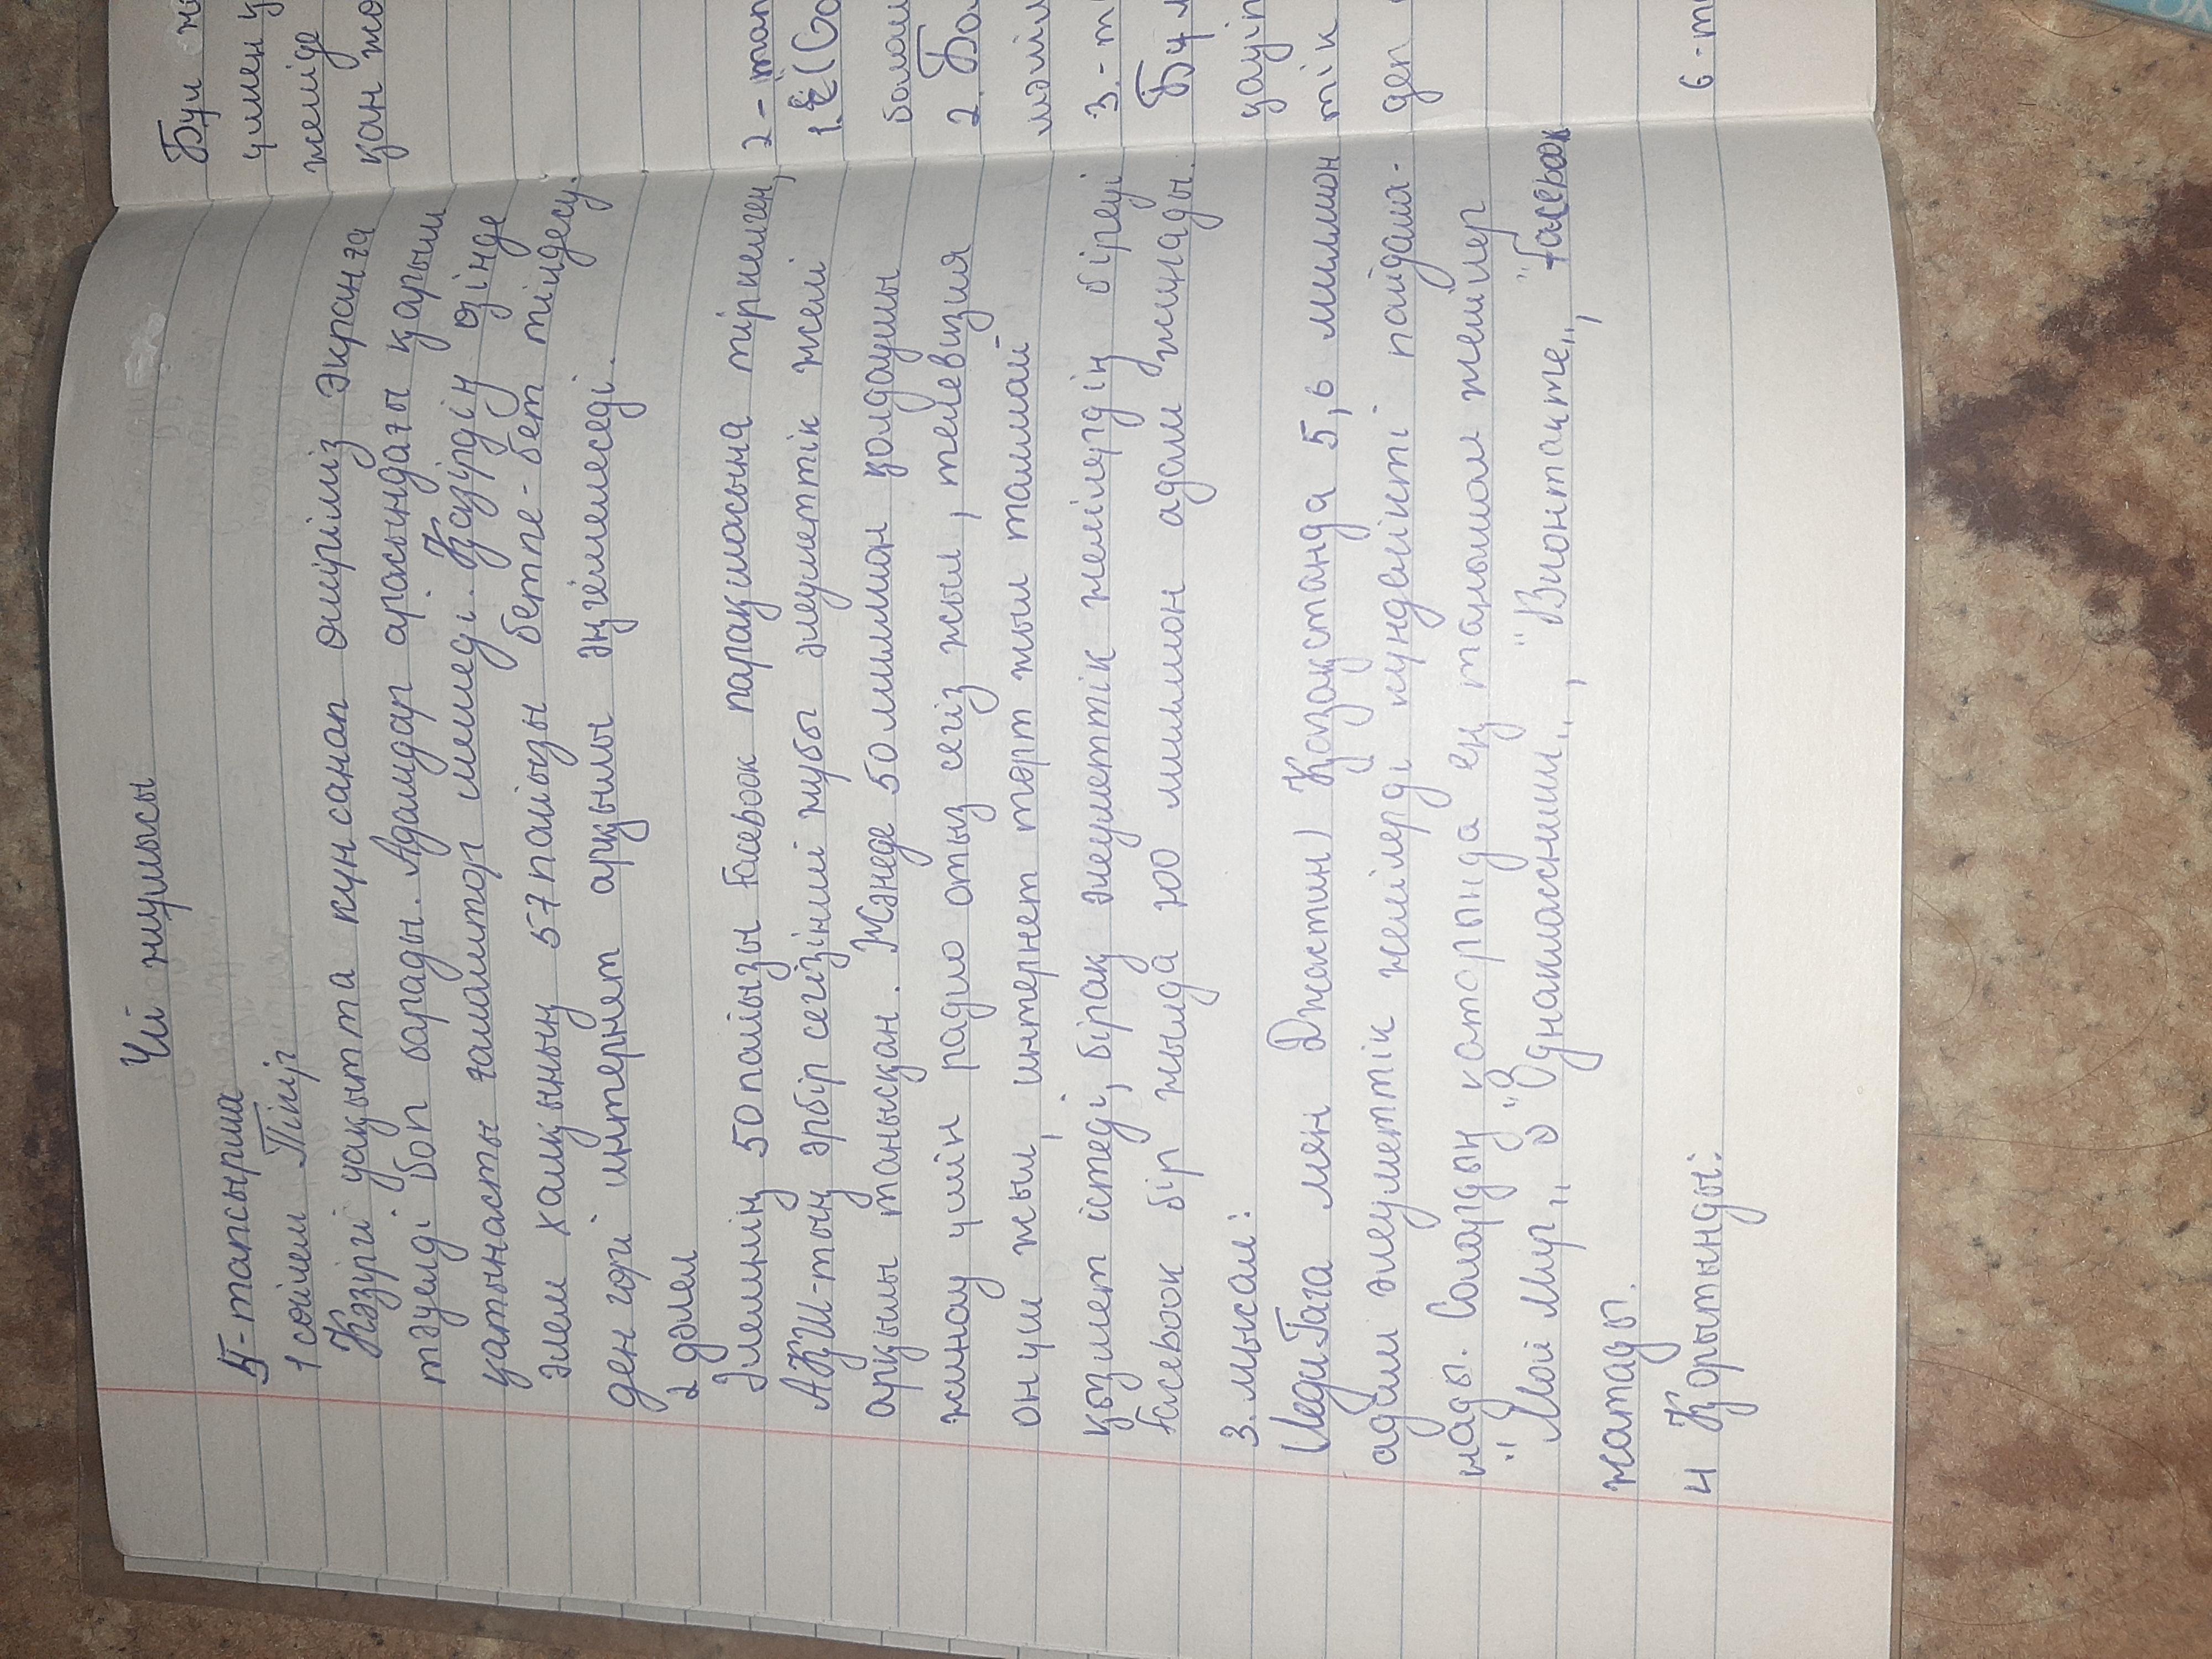 Үй жұмысы
5-тапсырма
1 сөйлем Пікір
Қәзіргі уақытта күн санап өміріміз экранға
тәуелді боп барады. Адамдар арасындағы қарым
қатынасты ғаламтор шешеді. Қазірдің өзінде
әлем халқының 57 пайызы бетпе-бет тілдесу.
ден гөрі интернет арқылы әңгімелеседі.
2 дәлел
Әлемнің 50 пайызы Facebook парақшасына тіркелген,
АҚШ-тың әрбір сегізінші жұбы әлеуметтік желі
арқылы танысқан. Және де 50 миллион қолдаушы
жинау үшін радио отыз сегіз жыл, телевизия
он үш жыл, интернет төрт жыл талмай
қызмет істеді, бірақ әлеуметтік желілердің бірегейі
Facebook бір жылда 200 миллион адам жинады.
3. мысал:
Леди Гага мен Джастин) Қазақстанда 5,6 миллион
адам әлеуметтік желілерді күнделікті пайдала-
нады. Солардың қатарында ең танымал желілер
"Мой Мир„ "Однаклассники„, "Вконтакте„, "Facebook
жатады.
4 Қорытынды:
Бұл
үшен
желіде
қан жо
2-тап
1.
болаш
2. Бо
мәлім
3.-т
Бұл
қауіп
тік
деп
6-т